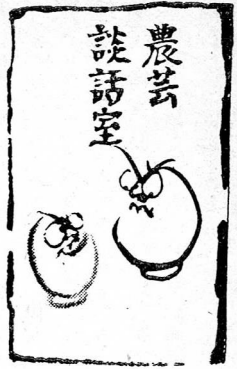 農芸
談話室